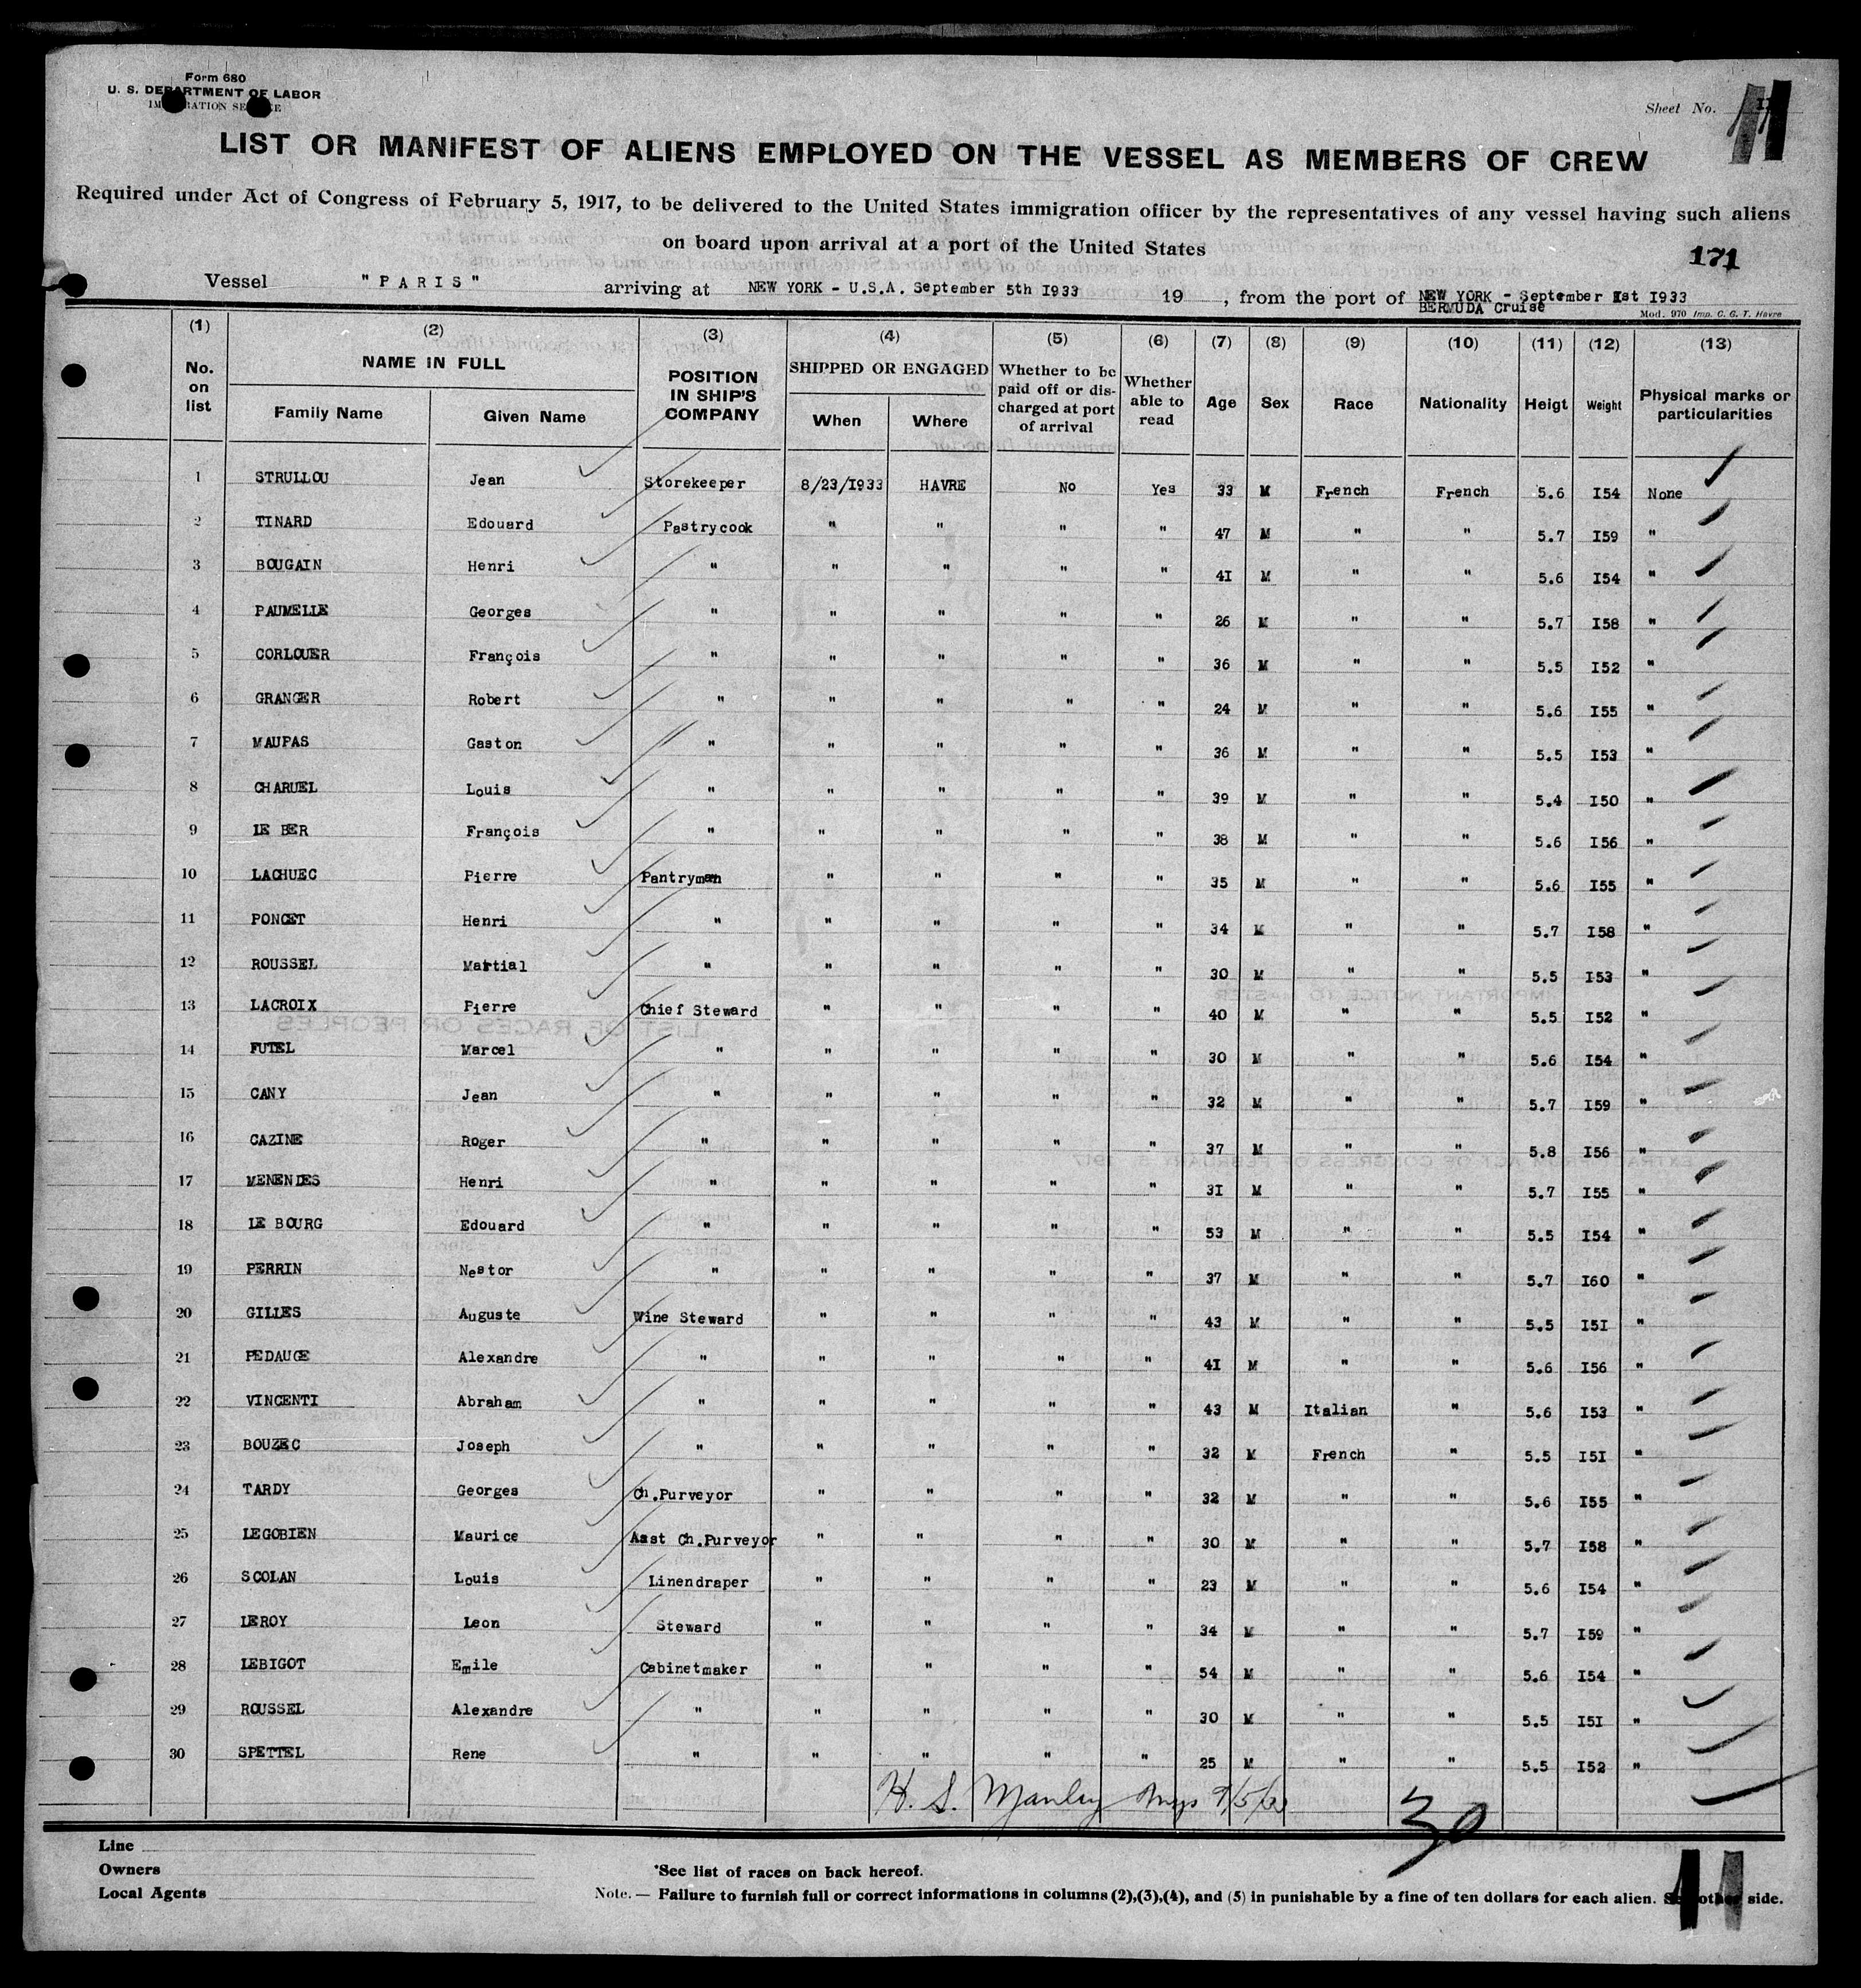 Form 680
U. S. DEPARTMENT OF LABOR
IMMIGRATION SERVICE
Sheet No. 11
LIST OR MANIFEST OF ALIENS EMPLOYED ON THE VESSEL AS MEMBERS OF CREW
Required under Act of Congress of February 5, 1917, to be delivered to the United States immigration officer by the representatives of any vessel having such aliens
on board upon arrival at a port of the United States
171
Vessel "PARIS" arriving at NEW YORK - U.S.A. September 5th I933 19 , from the port of NEW YORK - September Ist I933
BERMUDA Cruise
Mod. 970 Imp. C. G. T. Havre
(1) (2) (3) (4) (5) (6) (7) (8) (9) (10) (11) (12) (13)
No. on list NAME IN FULL Family Name Given Name POSITION IN SHIP'S COMPANY SHIPPED OR ENGAGED When Where Whether to be paid off or discharged at port of arrival Whether able to read Age Sex Race Nationality Heigt Weight Physical marks or particularities
1 STRULLOU Jean Storekeeper 8/23/I933 HAVRE No Yes 33 M French French 5.6 I54 None
2 TINARD Edouard Pastrycook " " " " 47 M " " 5.7 I59 "
3 BOUGAIN Henri " " " " " 4I M " " 5.6 I54 "
4 PAUMELLE Georges " " " " " 26 M " " 5.7 I58 "
5 CORLOUER François " " " " " 36 M " " 5.5 I52 "
6 GRANGER Robert " " " " " 24 M " " 5.6 I55 "
7 MAUPAS Gaston " " " " " 36 M " " 5.5 I53 "
8 CHARUEL Louis " " " " " 39 M " " 5.4 I50 "
9 LE BER François " " " " " 38 M " " 5.6 I56 "
10 LACHUEC Pierre Pantryman " " " " 35 M " " 5.6 I55 "
11 PONCET Henri " " " " " 34 M " " 5.7 I58 "
12 ROUSSEL Martial " " " " " 30 M " " 5.5 I53 "
13 LACROIX Pierre Chief Steward " " " " 40 M " " 5.5 I52 "
14 FUTEL Marcel " " " " " 30 M " " 5.6 I54 "
15 CANY Jean " " " " " 32 M " " 5.7 I59 "
16 CAZINE Roger " " " " " 37 M " " 5.8 I56 "
17 MENENDES Henri " " " " " 3I M " " 5.7 I55 "
18 LE BOURG Edouard " " " " " 53 M " " 5.5 I54 "
19 PERRIN Nestor " " " " " 37 M " " 5.7 I60 "
20 GILLES Auguste Wine Steward " " " " 43 M " " 5.5 I5I "
21 PEDAUGE Alexandre " " " " " 4I M " " 5.6 I56 "
22 VINCENTI Abraham " " " " " 43 M Italian " 5.6 I53 "
23 BOUZEC Joseph " " " " " 32 M French " 5.5 I5I "
24 TARDY Georges Ch.Purveyor " " " " 32 M " " 5.6 I55 "
25 LEGOBIEN Maurice Asst Ch.Purveyor " " " " 30 M " " 5.7 I58 "
26 SCOLAN Louis Linendraper " " " " 23 M " " 5.6 I54 "
27 LEROY Leon Steward " " " " 34 M " " 5.7 I59 "
28 LEBIGOT Emile Cabinetmaker " " " " 54 M " " 5.6 I54 "
29 ROUSSEL Alexandre " " " " " 30 M " " 5.5 I5I "
30 SPETTEL Rene " " " " " 25 M " " 5.5 I52 "
H. S. Manley 9/5/33
30
Line
Owners
Local Agents
*See list of races on back hereof.
Note. — Failure to furnish full or correct informations in columns (2),(3),(4), and (5) in punishable by a fine of ten dollars for each alien. See other side.
11